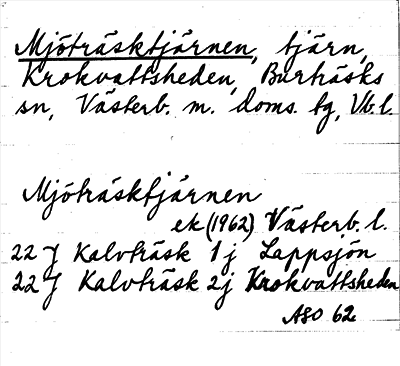 Mjöträsktjärnen, tjärn,
Krokvattsheden, Burträsks
sn, Västerb. m. doms. tg, Vb. l.
Mjöträsktjärnen
ek (1962) Västerb. l.
22 J Kalvträsk 1 j Lappsjön
22 J Kalvträsk 2 j Krokvattsheden
ASO 62